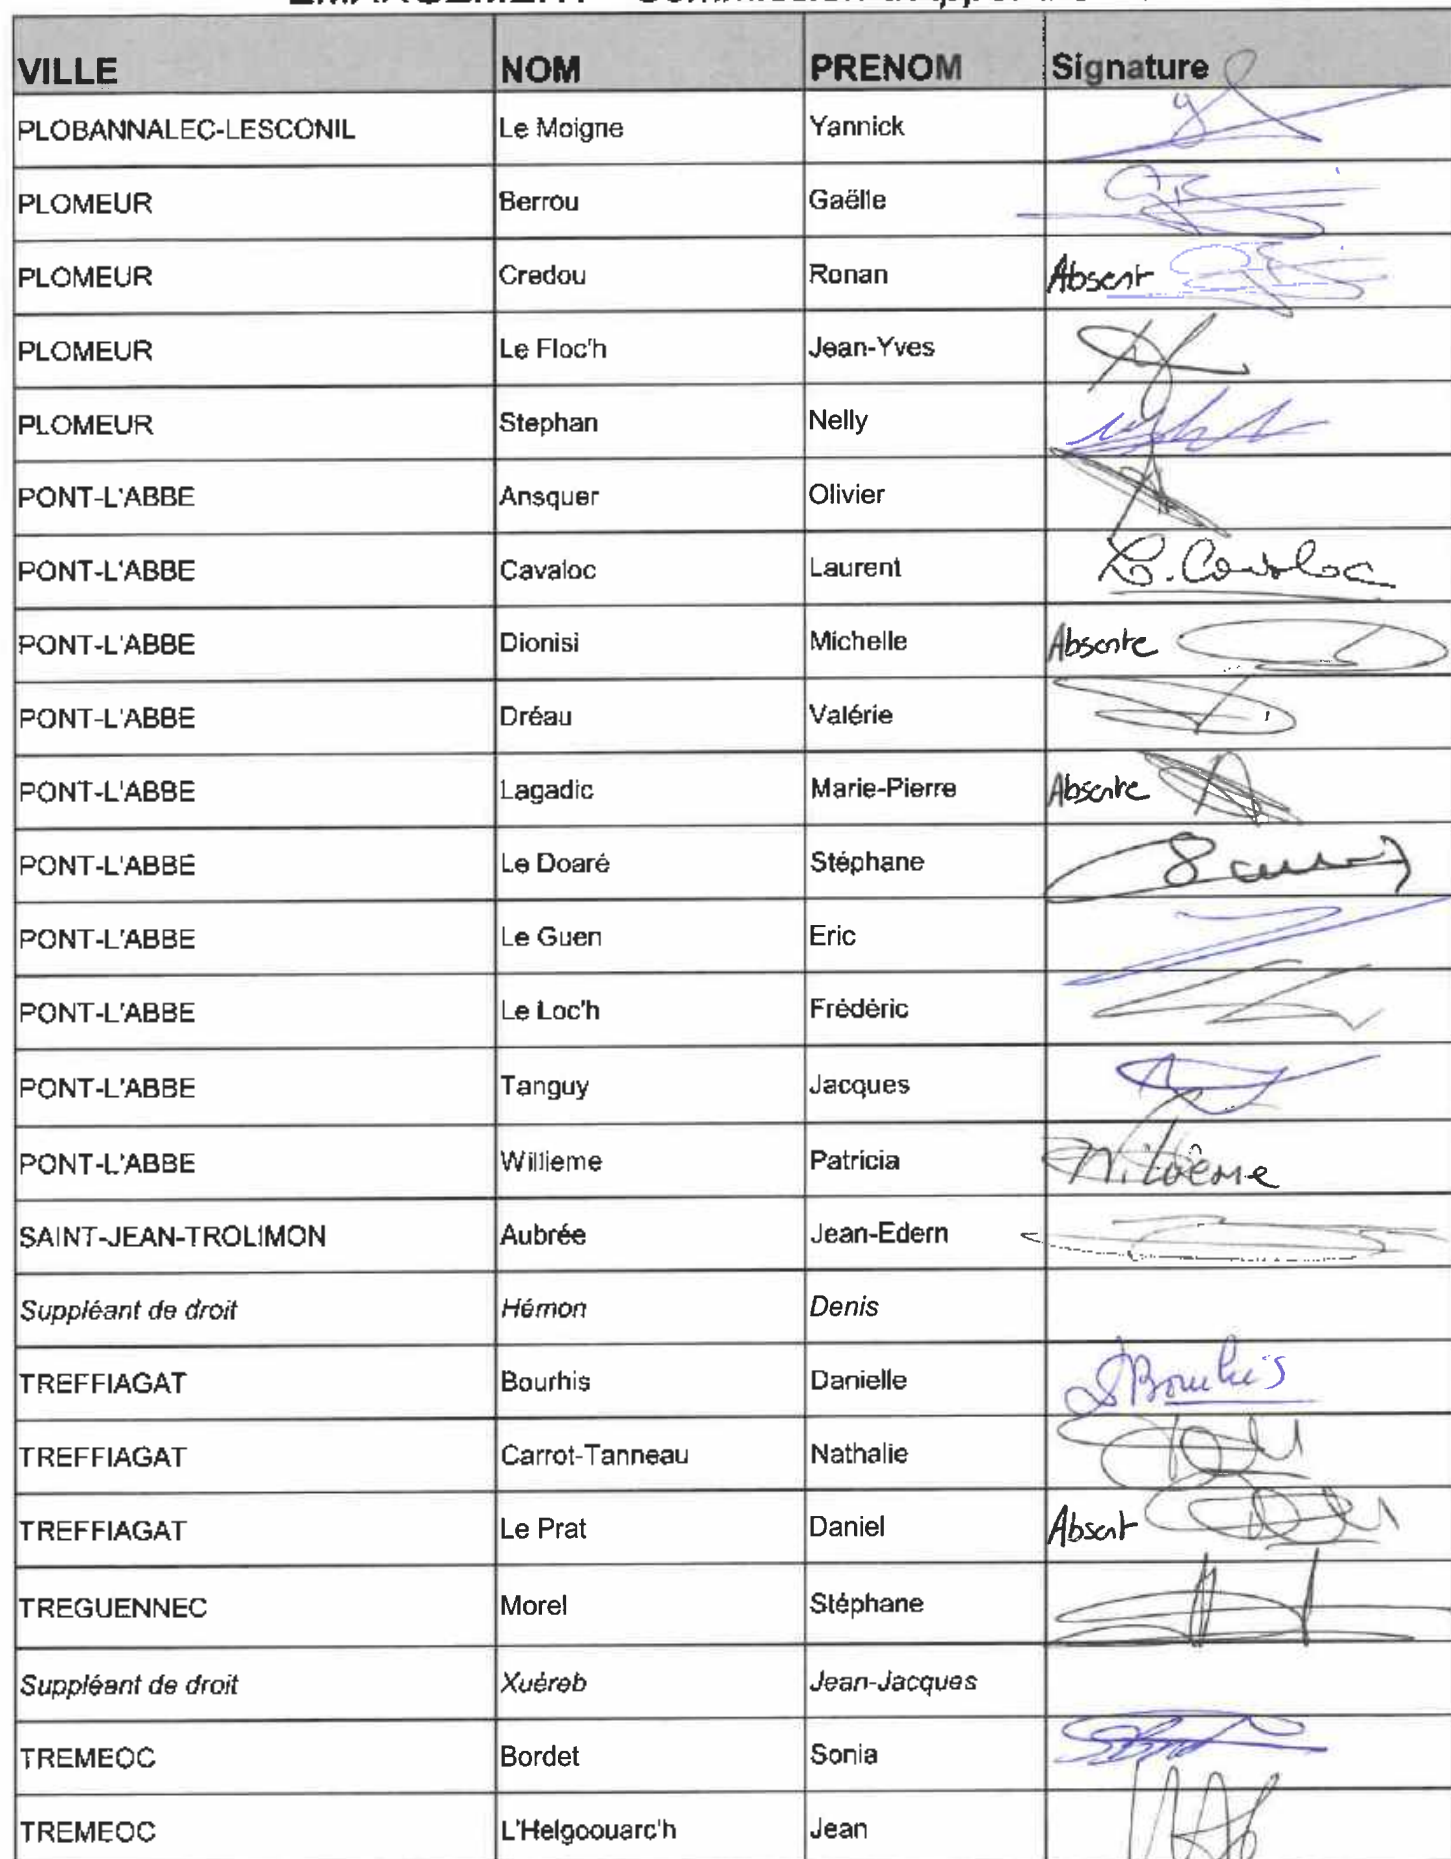 VILLE NOM PRENOM Signature
PLOBANNALEC-LESCONIL Le Moigne Yannick
PLOMEUR Berrou Gaëlle
PLOMEUR Credou Ronan Absent
PLOMEUR Le Floc'h Jean-Yves
PLOMEUR Stephan Nelly
PONT-L'ABBE Ansquer Olivier
PONT-L'ABBE Cavaloc Laurent L. Cavaloc
PONT-L'ABBE Dionisi Michelle Absente
PONT-L'ABBE Dréau Valérie
PONT-L'ABBE Lagadic Marie-Pierre Absente
PONT-L'ABBE Le Doaré Stéphane
PONT-L'ABBE Le Guen Eric
PONT-L'ABBE Le Loc'h Frédéric
PONT-L'ABBE Tanguy Jacques
PONT-L'ABBE Willieme Patricia
SAINT-JEAN-TROLIMON Aubrée Jean-Edern
Suppléant de droit Hémon Denis
TREFFIAGAT Bourhis Danielle Bourhis
TREFFIAGAT Carrot-Tanneau Nathalie
TREFFIAGAT Le Prat Daniel Absent
TREGUENNEC Morel Stéphane
Suppléant de droit Xuéreb Jean-Jacques
TREMEOC Bordet Sonia
TREMEOC L'Helgoouarc'h Jean